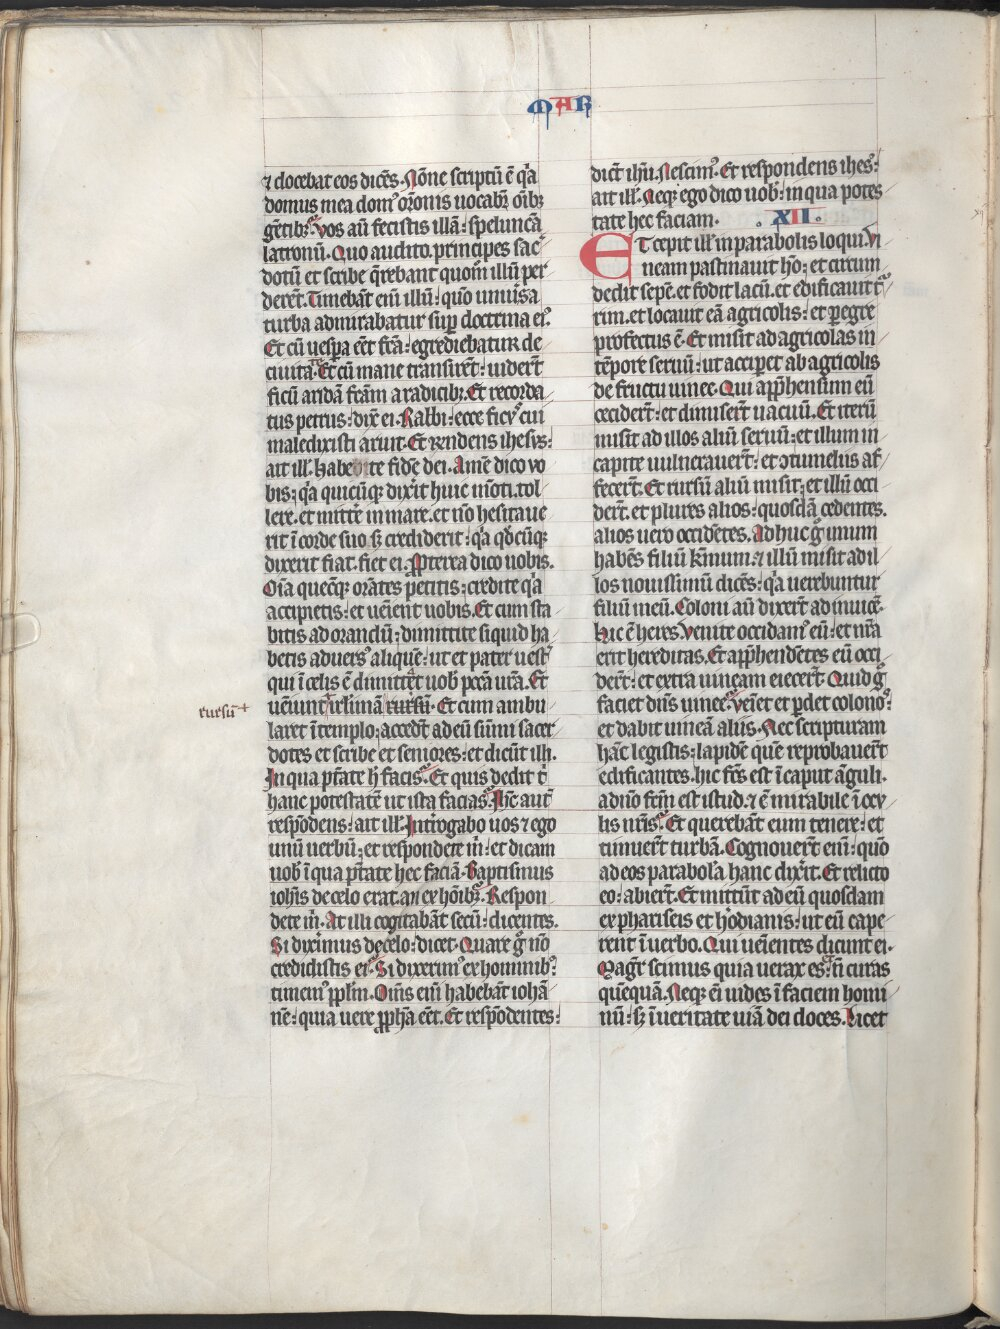 MAR
⁊ docebat eos dicēs. Nōne scriptū ē q̄a
domus mea dom᷒ or̄onis uocabr̄ oīb᷒
gētib᷒. Vos aū fecistis illā: speluncā
latronū. Quo audito. principes sac̄
dotū et scribe q̄rebant quom̄ illū per
derēt. Timebāt enī illū: quō uniu̾sa
turba admirabatur sup̱ doctrina ei᷒.
Et cū uesp̱a eēt fc̄a: egrediebatur de
ciuitāte. Et cū mane transirēt: uiderēt
ficū aridā fc̄am a radicib᷒. Et recorda
tus petrus: dix̄ ei. Rabbi: ecce fic᷒ cui
maledixisti aruit. Et rn̄dens ihesus:
ait ill̄. habete fidē dei. Amē dico vo
bis: q̄a quicūq̄ dixīt huic mōti. tol
lere. et mittē in mare. et nō hesitaue
rit ī corde suo sꝫ crediderit: q̄a qd̄cūq̄
dixerit fiat. fiet ei. Pp̄terea dico uobis.
Oīa quecūq̄ orātes petitis: credite q̄a
accipietis: et ueīent uobis. Et cum sta
bitis ad orandū: dimittite siquid ha
betis aduers᷒ aliquē: ut et pater uest̄
qui ī celis ē dimittet uob̄ pcc̄a ur̄a. Et
rursū +
ueīunt irl̄imā rursū. Et cum ambu
laret ī templo: accedt̄ ad eū sūmi sacer
dotes et scribe et seniores: et dicūt illi.
In qua pt̄ate h̄ facis. Et quis dedit t̄
hanc potestatē ut ista facias. Ihc̄ aut̄
respōdens: ait ill̄. Interrogabo uos ⁊ ego
unū uerbū: et respondete m̄: et dicam
uob̄ ī qua pt̄ate hec faciā. Baptismus
ioh̄is de celo erat. an ex hōib᷒. Respon
dete m̄. At illi cogitabāt secū: dicentes.
Si dixīmus de celo: dicet. Quare g̊ nō
credidistis ei. Si dixerim᷒ ex hominib᷒
timem᷒ ppl̄m. Oīms enī habebāt iohā
nē: quia uere pp̄ha eēt. Et respōdentes:
dicūt ihū. Nescim᷒. Et respondens ihes᷒:
ait ill̄. Neq̄ ego dico uob̄: in qua potes
tate hec faciam. XII.
ET cepit ill̄ in parabolis loqui. Vi
neam pastinauit hō: et circum
dedit sepē. et fodit lacū. et edificauit tᷓ
rim. et locauit eā agricolis: et p̱egre
profectus ē. Et misit ad agricolas in
tēpore seruū: ut accip̱et ab agricolis
de fructu uinee. Qui app̄hensum eū
cecidert̄: et dimisert̄ uacuū. Et iterū
misit ad illos aliū seruū: et illum in
capite uulnerauert̄: et ↄtumeliis af
fecert̄. Et rursū aliū misit: et illū occi
dert̄. et plures alios: quosdā cedentes.
alios uero occidētes. Adhuc g̊ unum
habēs filiū kmum. ⁊ illū misit ad il
los nouissimū dicēs: q̄a uerebuntur
filiū meū. Coloni aū dixert̄ ad inuicē.
hic ē heres. Venite occidam᷒ eū: et nr̄a
erit hereditas. Et app̄hendētes eū occi
dert̄: et extra uineam eiecert̄. Quid g̊
faciet dn̄s uinee. Veīet et p̱det colonos:
et dabit uineā aliis. Nec scripturam
hāc legistis: lapidē quē reprobauert̄
edificantes. hic fc̄s est ī caput āguli.
a dn̄o fc̄m est istud. ⁊ ē mirabile ī ocu
lis nr̄is. Et querebāt eum tenere: et
timuert̄ turbā. Cognouert̄ enī: quō
ad eos parabolā hanc dixīt. Et relicto
eo: abiert̄. Et mittūt ad eū quosdam
ex phariseis et h̊odianis: ut eū cape
rent ī uerbo. Qui ueīentes dicunt ei.
Magr̄ scimus quia uerax es: n̄ curas
quēquā. Neq̄ eī uides ī faciem homi
nū: sꝫ ī ueritate uiā dei doces. Licet